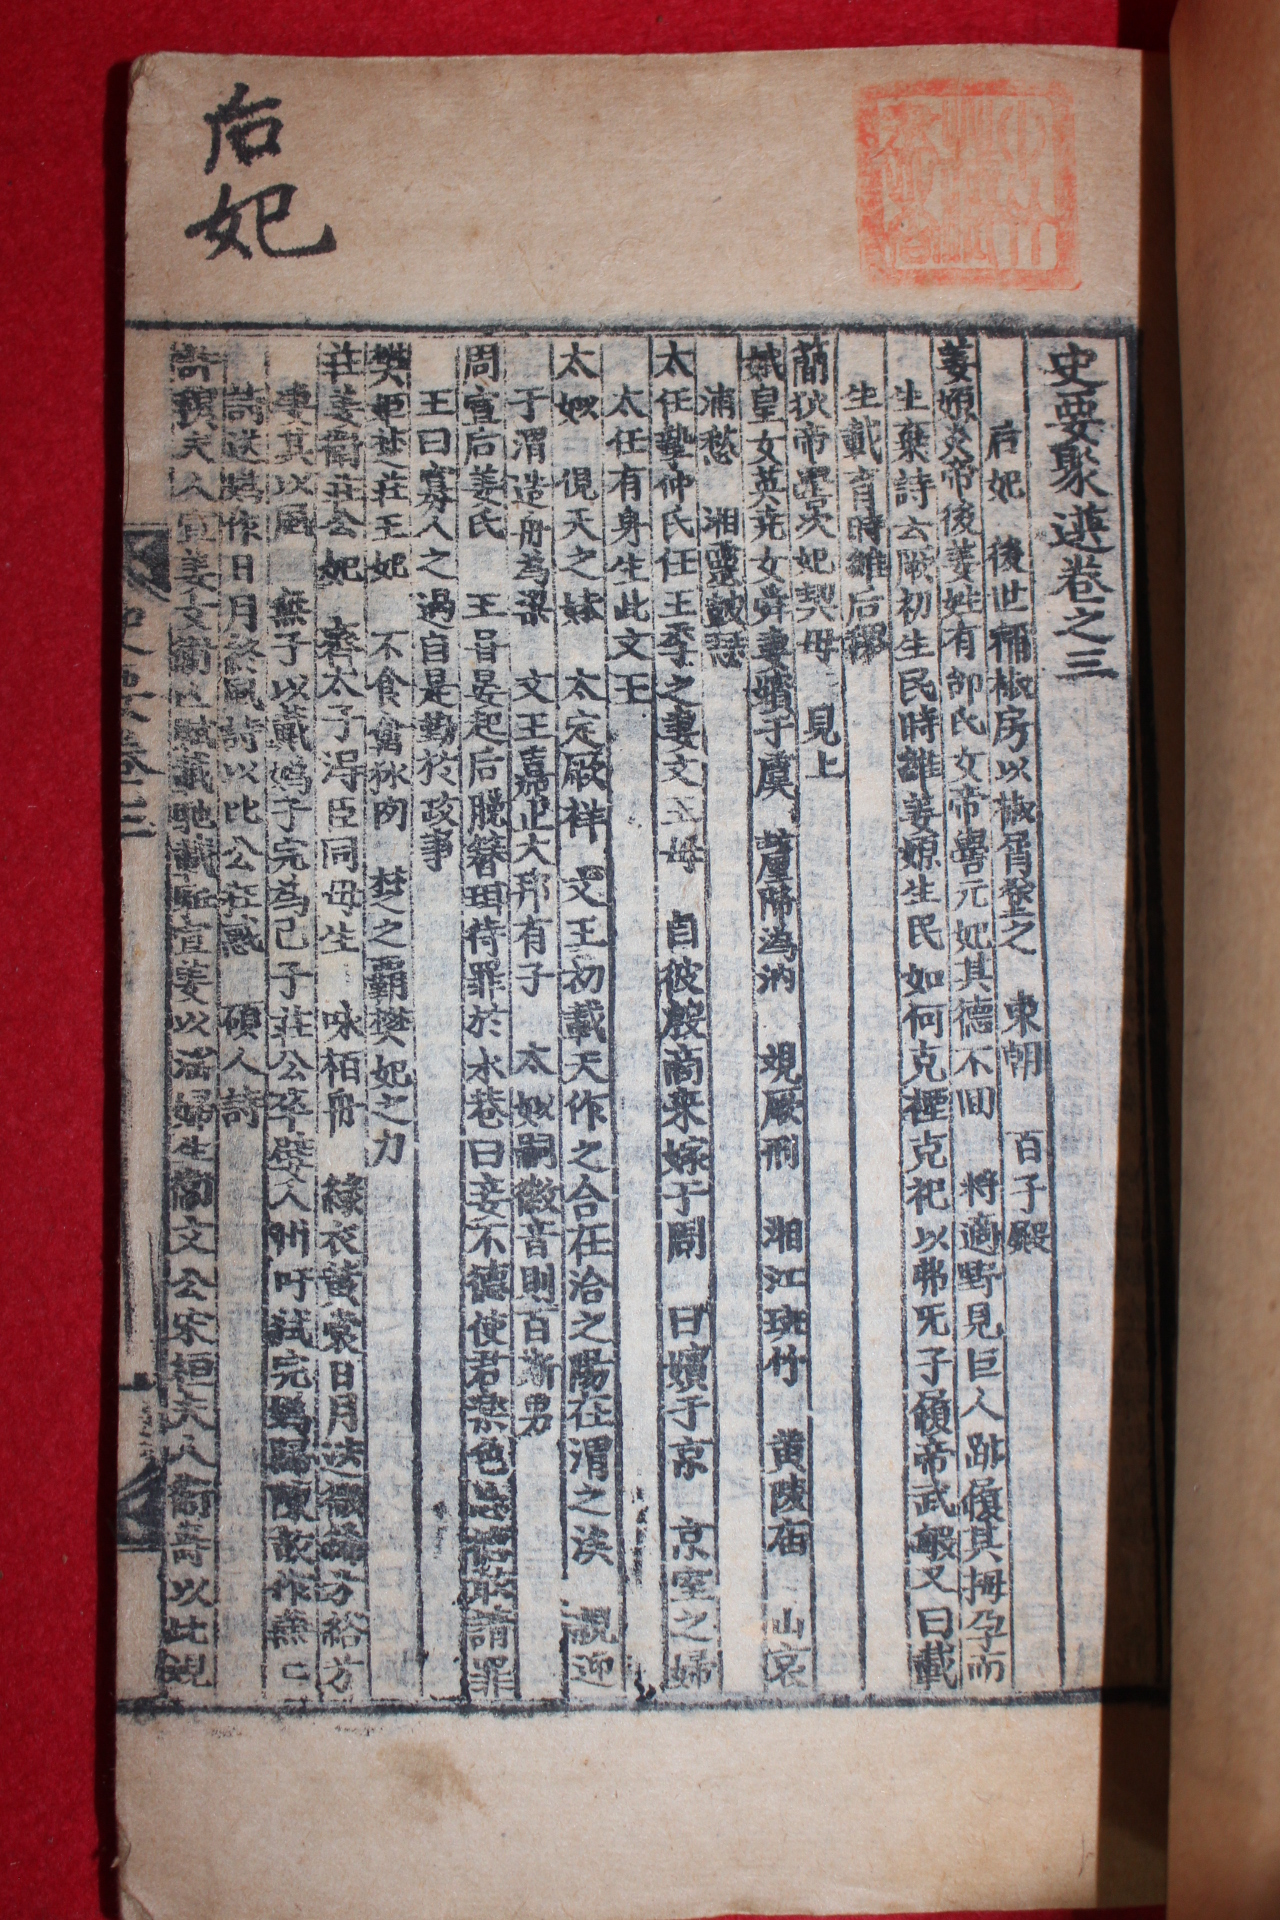 史要聚選卷之三
后妃 後世稱椒房以椒胥塗之 東朝 百子殿
姜嫄炎帝後姜姓有邰氏女帝嚳元妃其德不回 將適野見巨人跡履其拇孕而
生棄詩云厥初生民時維姜嫄生民如何克禋克祀以弗旡子履帝武敏又曰載
生載育時維后稷
簡狄帝嚳次妃契母 見上
娥皇女英堯女舜妻嬪于虞 釐降溈汭 觀厥刑 湘江斑竹 黃陵庙 山哀
浦愁 湘靈鼓瑟
太任摯仲氏任王季之妻文王母 自彼殷商來嫁于周 曰嬪于京 京室之婦
太任有身生此文王
太姒 俔天之妹 太定厥祥 文王初載天作之合在洽之陽在渭之涘 親迎
于渭造舟為梁 文王嘉止大邦有子 太姒嗣徽音則百斯男
周宣后姜氏 王甞晏起后脫簪珥待罪於永巷曰妾不德使君樂色忘德敢請罪
王曰寡人之過自是勤於政事
樊姬楚莊王妃 不食禽獸肉 楚之覇樊妃之力
莊姜衛莊公妃 齊太子淂臣同母生 咏栢舟 綠衣黃裳日月迭微絺兮綌兮
凄其以風 無子以戴媯子完為己子莊公卒嬖人州吁弑完媯歸陳故作燕
詩送媯作日月終風詩以比公在惑 碩人詩
許穆夫人宣姜女 賦載馳載驅宣姜以 婦生 文公宋桓夫人 以此
后妃